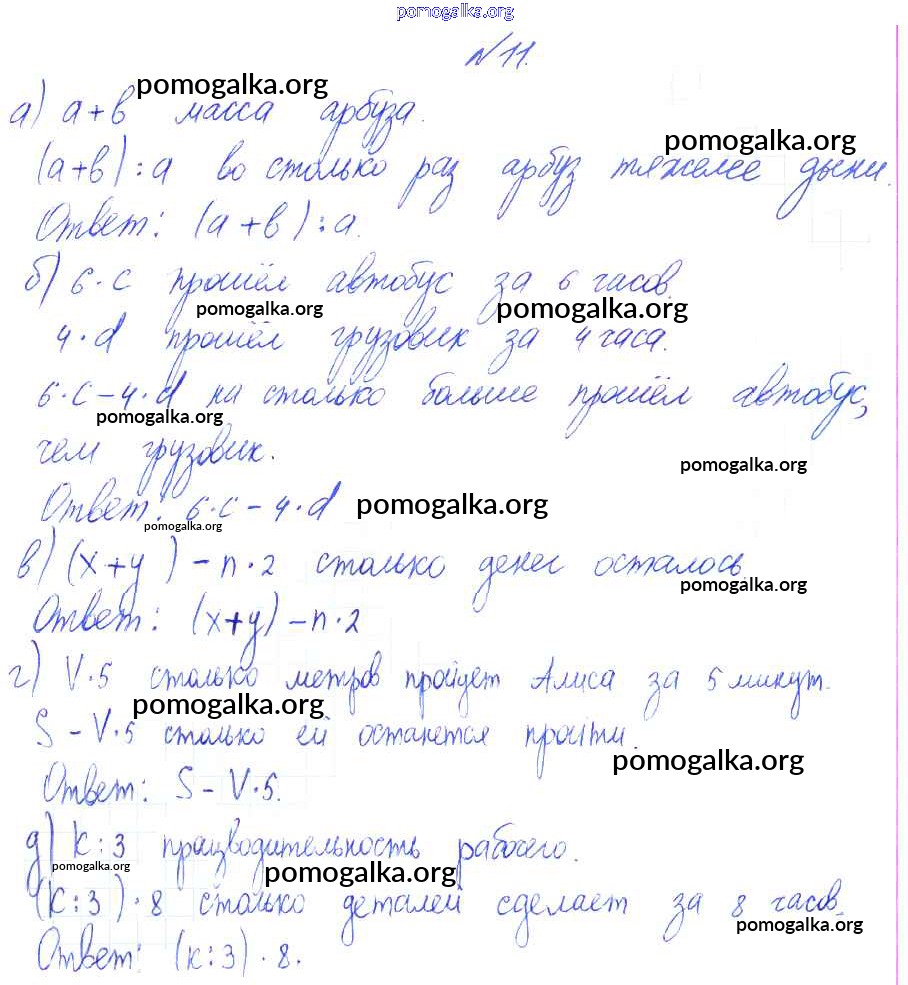 pomogalka.org
№ 11.
pomogalka.org
а) a+b масса арбуза.
pomogalka.org
(a+b):a во столько раз арбуз тяжелее дыни.
Ответ: (a+b):a.
б) 6·c прошёл автобус за 6 часов.
pomogalka.org pomogalka.org
4·d прошёл грузовик за 4 часа.
6·c-4·d на столько больше прошёл автобус,
pomogalka.org
чем грузовик.
pomogalka.org
Ответ: 6·c-4·d pomogalka.org
pomogalka.org
в) (x+y)-n·2 столько денег осталось
pomogalka.org
Ответ: (x+y)-n·2
г) V·5 столько метров пройдет Алиса за 5 минут.
pomogalka.org
S-V·5 столько ей останется пройти.
pomogalka.org
Ответ: S-V·5.
д) k:3 працзводительность рабочего.
pomogalka.org pomogalka.org
(k:3)·8 столько деталей сделает за 8 часов.
pomogalka.org
Ответ: (k:3)·8.